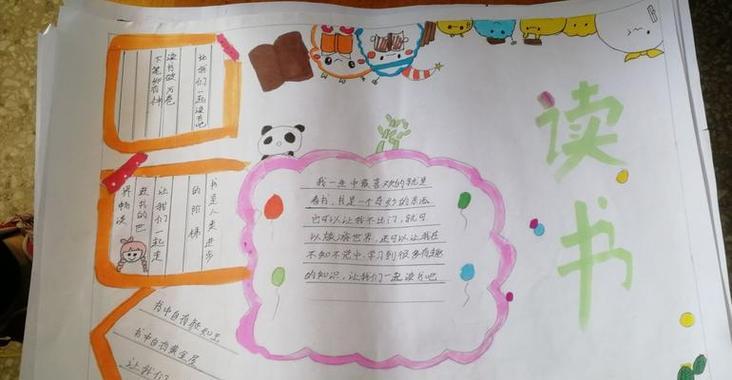 读书
让我们一起读书吧
读书破万卷
下笔如有神
书是人类进步
的阶梯
让我们一起走
进书的世
界畅读
书中自有颜如玉
书中自有黄金屋
让我们
我一生中最喜欢的就是
看书，书是一个奇妙的东西
它可以让我不出门，就可
以游世界，还可以让我在
不知不觉中，学习到很多有趣
的知识，让我们一起读书吧